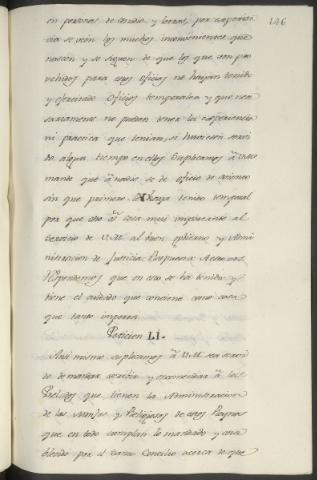 146
en personas de estudio y letras, por experien
cia se veen los muchos inconvenientes que
nascen y se siguen de que los que son pro
vehidos para esos oficios no hayan tenido
y exercitado oficios temporales y que nece
sariamente no pueden tener la experiencia
ni practica que tenian, si huviesen servi
do algun tiempo en ellos Suplicamos á V.M.
mande que á nadie se de oficio de
sin que primero haya tenido temporal
por que esta es cosa muy importante al
servicio de V.M. al buen govierno y Admi
nistracion de Justicia. Respuesta A esto vos
Respondemos que en eso se ha tenido y
tiene el cuidado que conviene como cosa
que tanto importa.
Peticion LI.
Ansi mismo suplicamos á V.M. sea servi
do de mandar escribir y encomendar á los
Prelados que tienen la Administracion
de las Monjas y Religiosos de estos Reynos
que en todo cumplan lo mandado y esta
blecido por el Sacro Concilio acerca de que